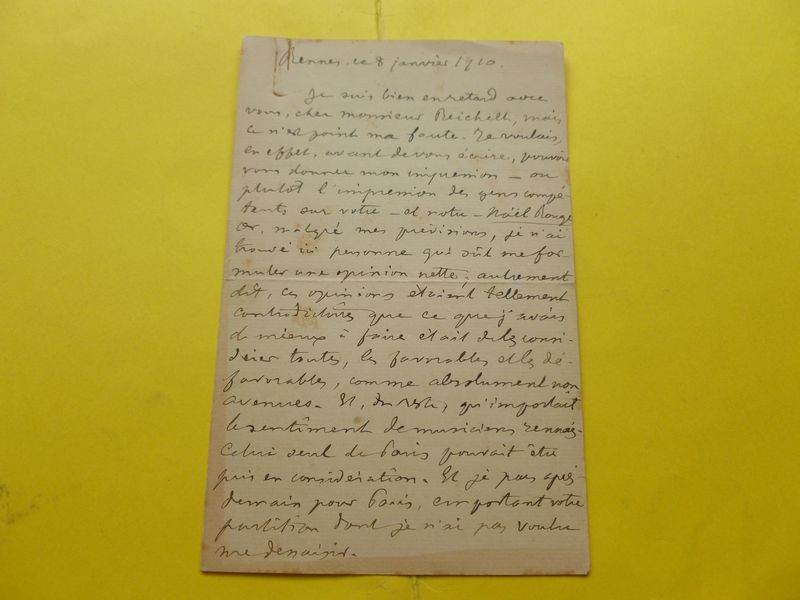 Rennes, ce 8 janvier 1910.
Je suis bien en retard avec
vous, cher monsieur Reichelt, mais
ce n'est point ma faute. Je voulais,
en effet, avant de vous écrire, pouvoir
vous donner mon impression – ou
plutôt l'impression des gens compé-
tents, sur votre – et notre – Noël Rouge
Or, malgré mes prévisions, je n'ai
trouvé ici personne qui sût me for-
muler une opinion nette; autrement
dit, ces opinions étaient tellement
contradictoires que ce que j'avais
de mieux à faire était de les consi-
dérer toutes, les favorables et les dé-
favorables, comme absolument non
avenues. Et, du reste, qu'importait
le sentiment de musiciens rennais.
Celui seul de Paris pouvait être
pris en considération. Et je pars après-
demain pour Paris, emportant votre
partition dont je n'ai pas voulu
me dessaisir.